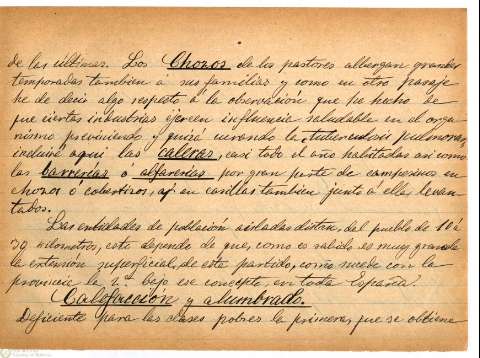 de las últimas. Los Chozos de los pastores albergan grandes
temporadas tambien á sus familias y como en otro paraje
he de decir algo respecto á la observación que he hecho de
que ciertas industrias ejercen influencia saludable en el orga-
nismo previniendo y quizá curando la tuberculosis pulmonar,
incluiré aqui las caleras, casi todo el año habitadas asi como
las barrerias o alfarerias por gran parte de campesinos en
chozos ó cobertizos, en casillas tambien junto á ellas, levan-
tados.
Las entidades de población aisladas distan, del pueblo de 10 á
39 kilometros, este depende de que, como es sabido es muy grande
la extensión superficial, de este partido, como sucede con la
provincia la 2.ª bajo ese concepto, en toda España.
Calefaccion y alumbrado.
Deficiente para las clases pobres la primera, que se obtiene